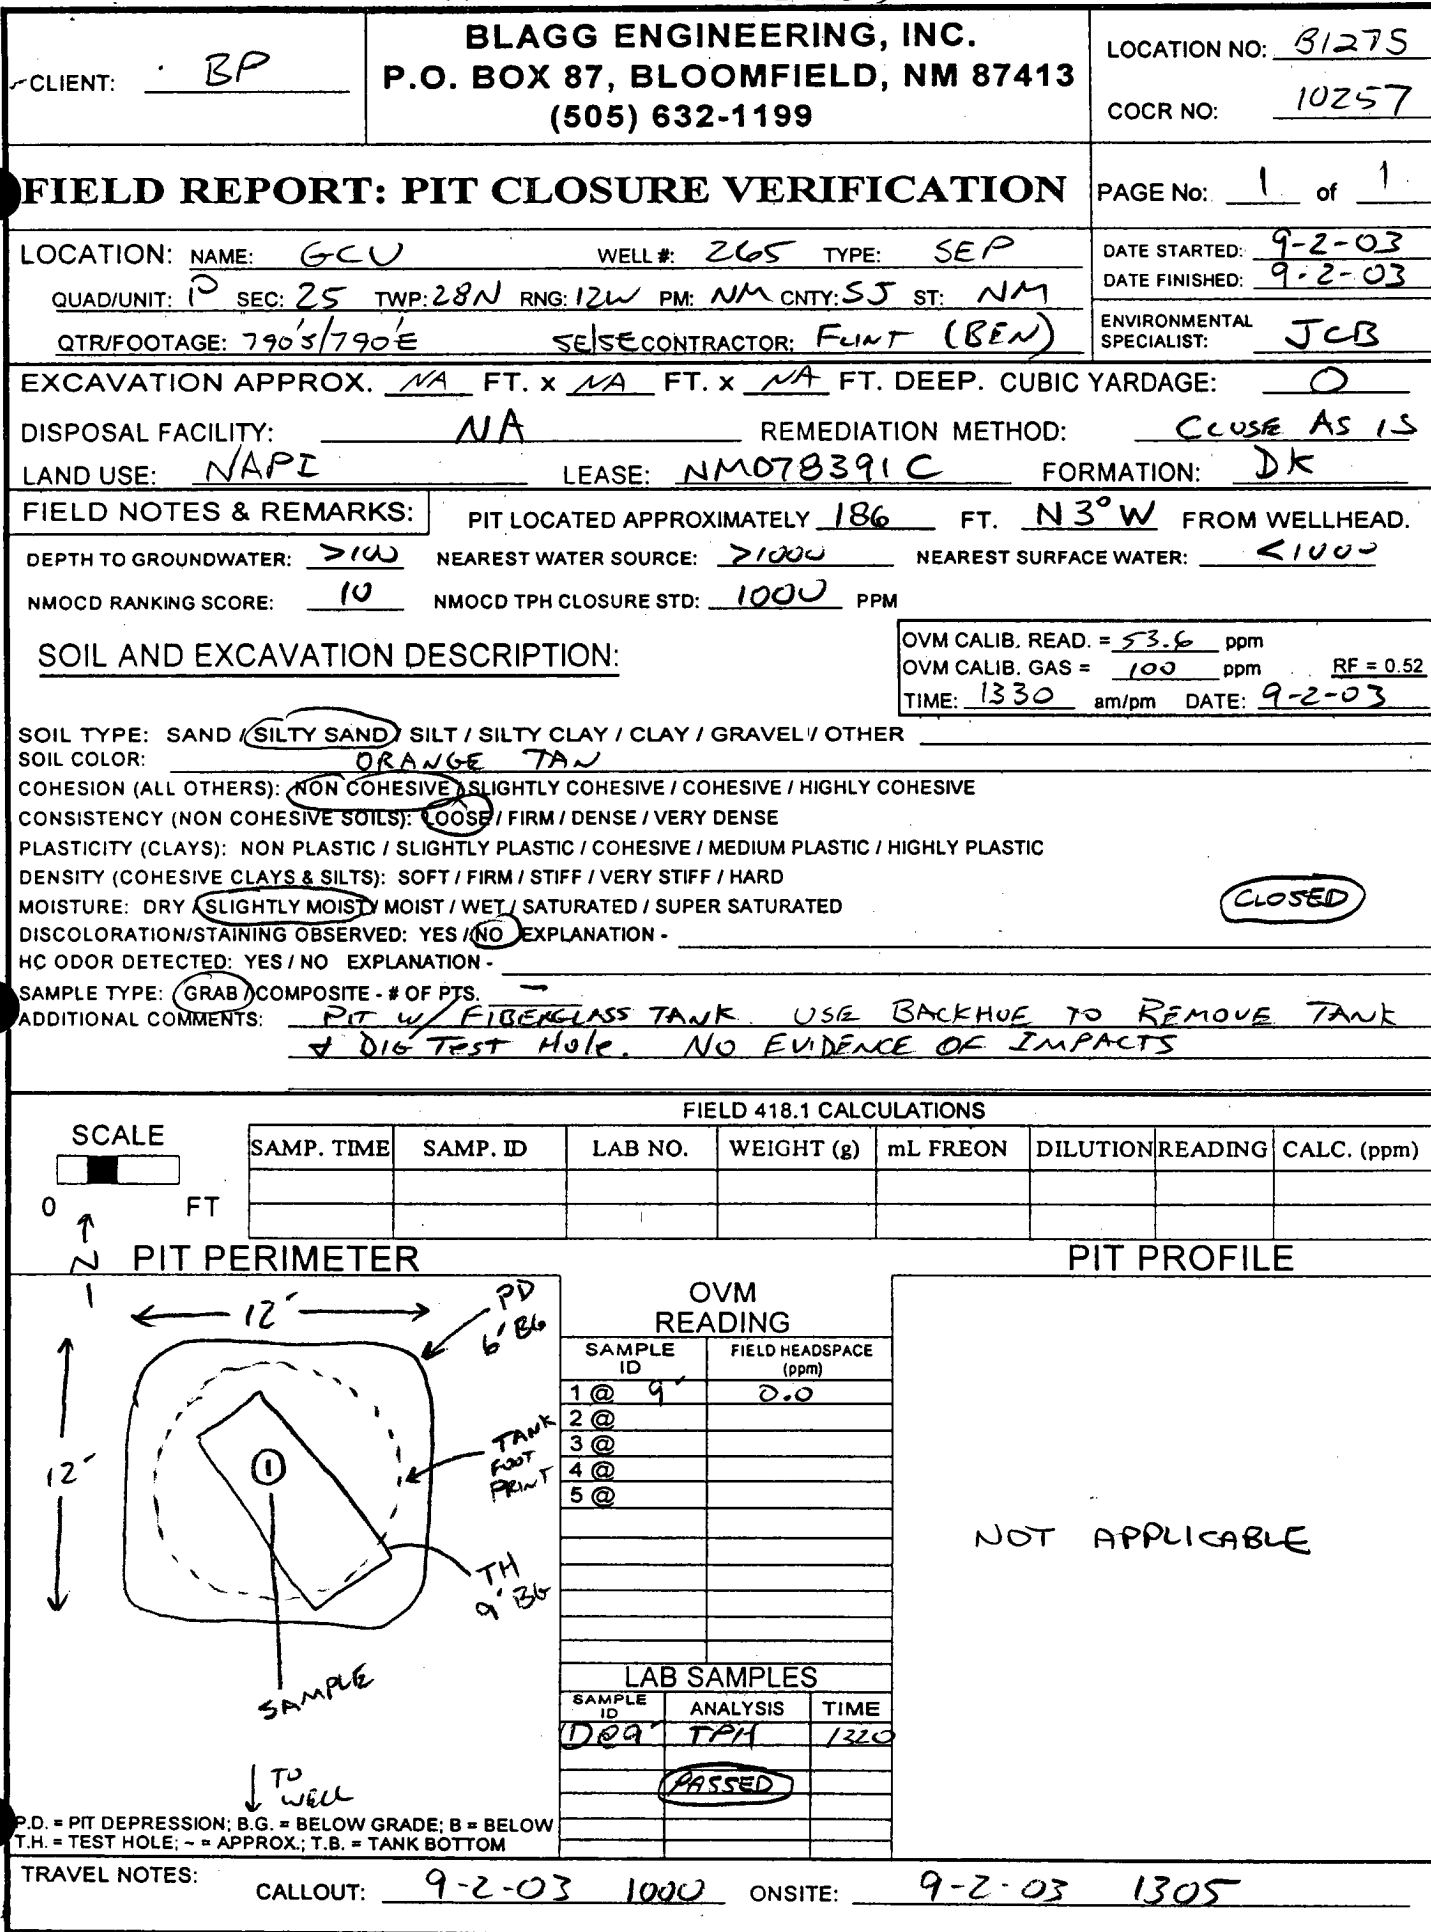 CLIENT: BP
BLAGG ENGINEERING, INC.
P.O. BOX 87, BLOOMFIELD, NM 87413
(505) 632-1199
LOCATION NO: B1275
COCR NO: 10257
FIELD REPORT: PIT CLOSURE VERIFICATION
PAGE No: 1 of 1
LOCATION: NAME: GCU WELL #: 265 TYPE: SEP
QUAD/UNIT: P SEC: 25 TWP: 28N RNG: 12W PM: NM CNTY: SJ ST: NM
QTR/FOOTAGE: 790'S/790'E SE/SE CONTRACTOR: FLINT (BEN)
DATE STARTED: 9-2-03
DATE FINISHED: 9-2-03
ENVIRONMENTAL
SPECIALIST: JCB
EXCAVATION APPROX. NA FT. x NA FT. x NA FT. DEEP. CUBIC YARDAGE: 0
DISPOSAL FACILITY: NA REMEDIATION METHOD: CLOSE AS IS
LAND USE: NAPI LEASE: NM078391C FORMATION: DK
FIELD NOTES & REMARKS: PIT LOCATED APPROXIMATELY 186 FT. N3°W FROM WELLHEAD.
DEPTH TO GROUNDWATER: >100 NEAREST WATER SOURCE: >1000 NEAREST SURFACE WATER: <1000
NMOCD RANKING SCORE: 10 NMOCD TPH CLOSURE STD: 1000 PPM
SOIL AND EXCAVATION DESCRIPTION:
OVM CALIB. READ. = 53.6 ppm
OVM CALIB. GAS = 100 ppm RF = 0.52
TIME: 1330 am/pm DATE: 9-2-03
SOIL TYPE: SAND / SILTY SAND / SILT / SILTY CLAY / CLAY / GRAVEL / OTHER
SOIL COLOR: ORANGE TAN
COHESION (ALL OTHERS): NON COHESIVE / SLIGHTLY COHESIVE / COHESIVE / HIGHLY COHESIVE
CONSISTENCY (NON COHESIVE SOILS): LOOSE / FIRM / DENSE / VERY DENSE
PLASTICITY (CLAYS): NON PLASTIC / SLIGHTLY PLASTIC / COHESIVE / MEDIUM PLASTIC / HIGHLY PLASTIC
DENSITY (COHESIVE CLAYS & SILTS): SOFT / FIRM / STIFF / VERY STIFF / HARD
MOISTURE: DRY / SLIGHTLY MOIST / MOIST / WET / SATURATED / SUPER SATURATED
CLOSED
DISCOLORATION/STAINING OBSERVED: YES / NO EXPLANATION -
HC ODOR DETECTED: YES / NO EXPLANATION -
SAMPLE TYPE: GRAB / COMPOSITE - # OF PTS. —
ADDITIONAL COMMENTS: PIT W/ FIBERGLASS TANK. USE BACKHOE TO REMOVE TANK
& DIG TEST HOLE. NO EVIDENCE OF IMPACTS
FIELD 418.1 CALCULATIONS
SCALE
0 FT
SAMP. TIME SAMP. ID LAB NO. WEIGHT (g) mL FREON DILUTION READING CALC. (ppm)
N
PIT PERIMETER
PIT PROFILE
12'
PD
6' BG
12'
TANK
FOOT
PRINT
1
TH
9' BG
SAMPLE
TO
WELL
OVM
READING
SAMPLE
ID
FIELD HEADSPACE
(ppm)
1 @ 9' 0.0
2 @
3 @
4 @
5 @
NOT APPLICABLE
LAB SAMPLES
SAMPLE
ID
ANALYSIS TIME
1@9' TPH 1320
PASSED
P.D. = PIT DEPRESSION; B.G. = BELOW GRADE; B = BELOW
T.H. = TEST HOLE; ~ = APPROX.; T.B. = TANK BOTTOM
TRAVEL NOTES:
CALLOUT: 9-2-03 1000 ONSITE: 9-2-03 1305